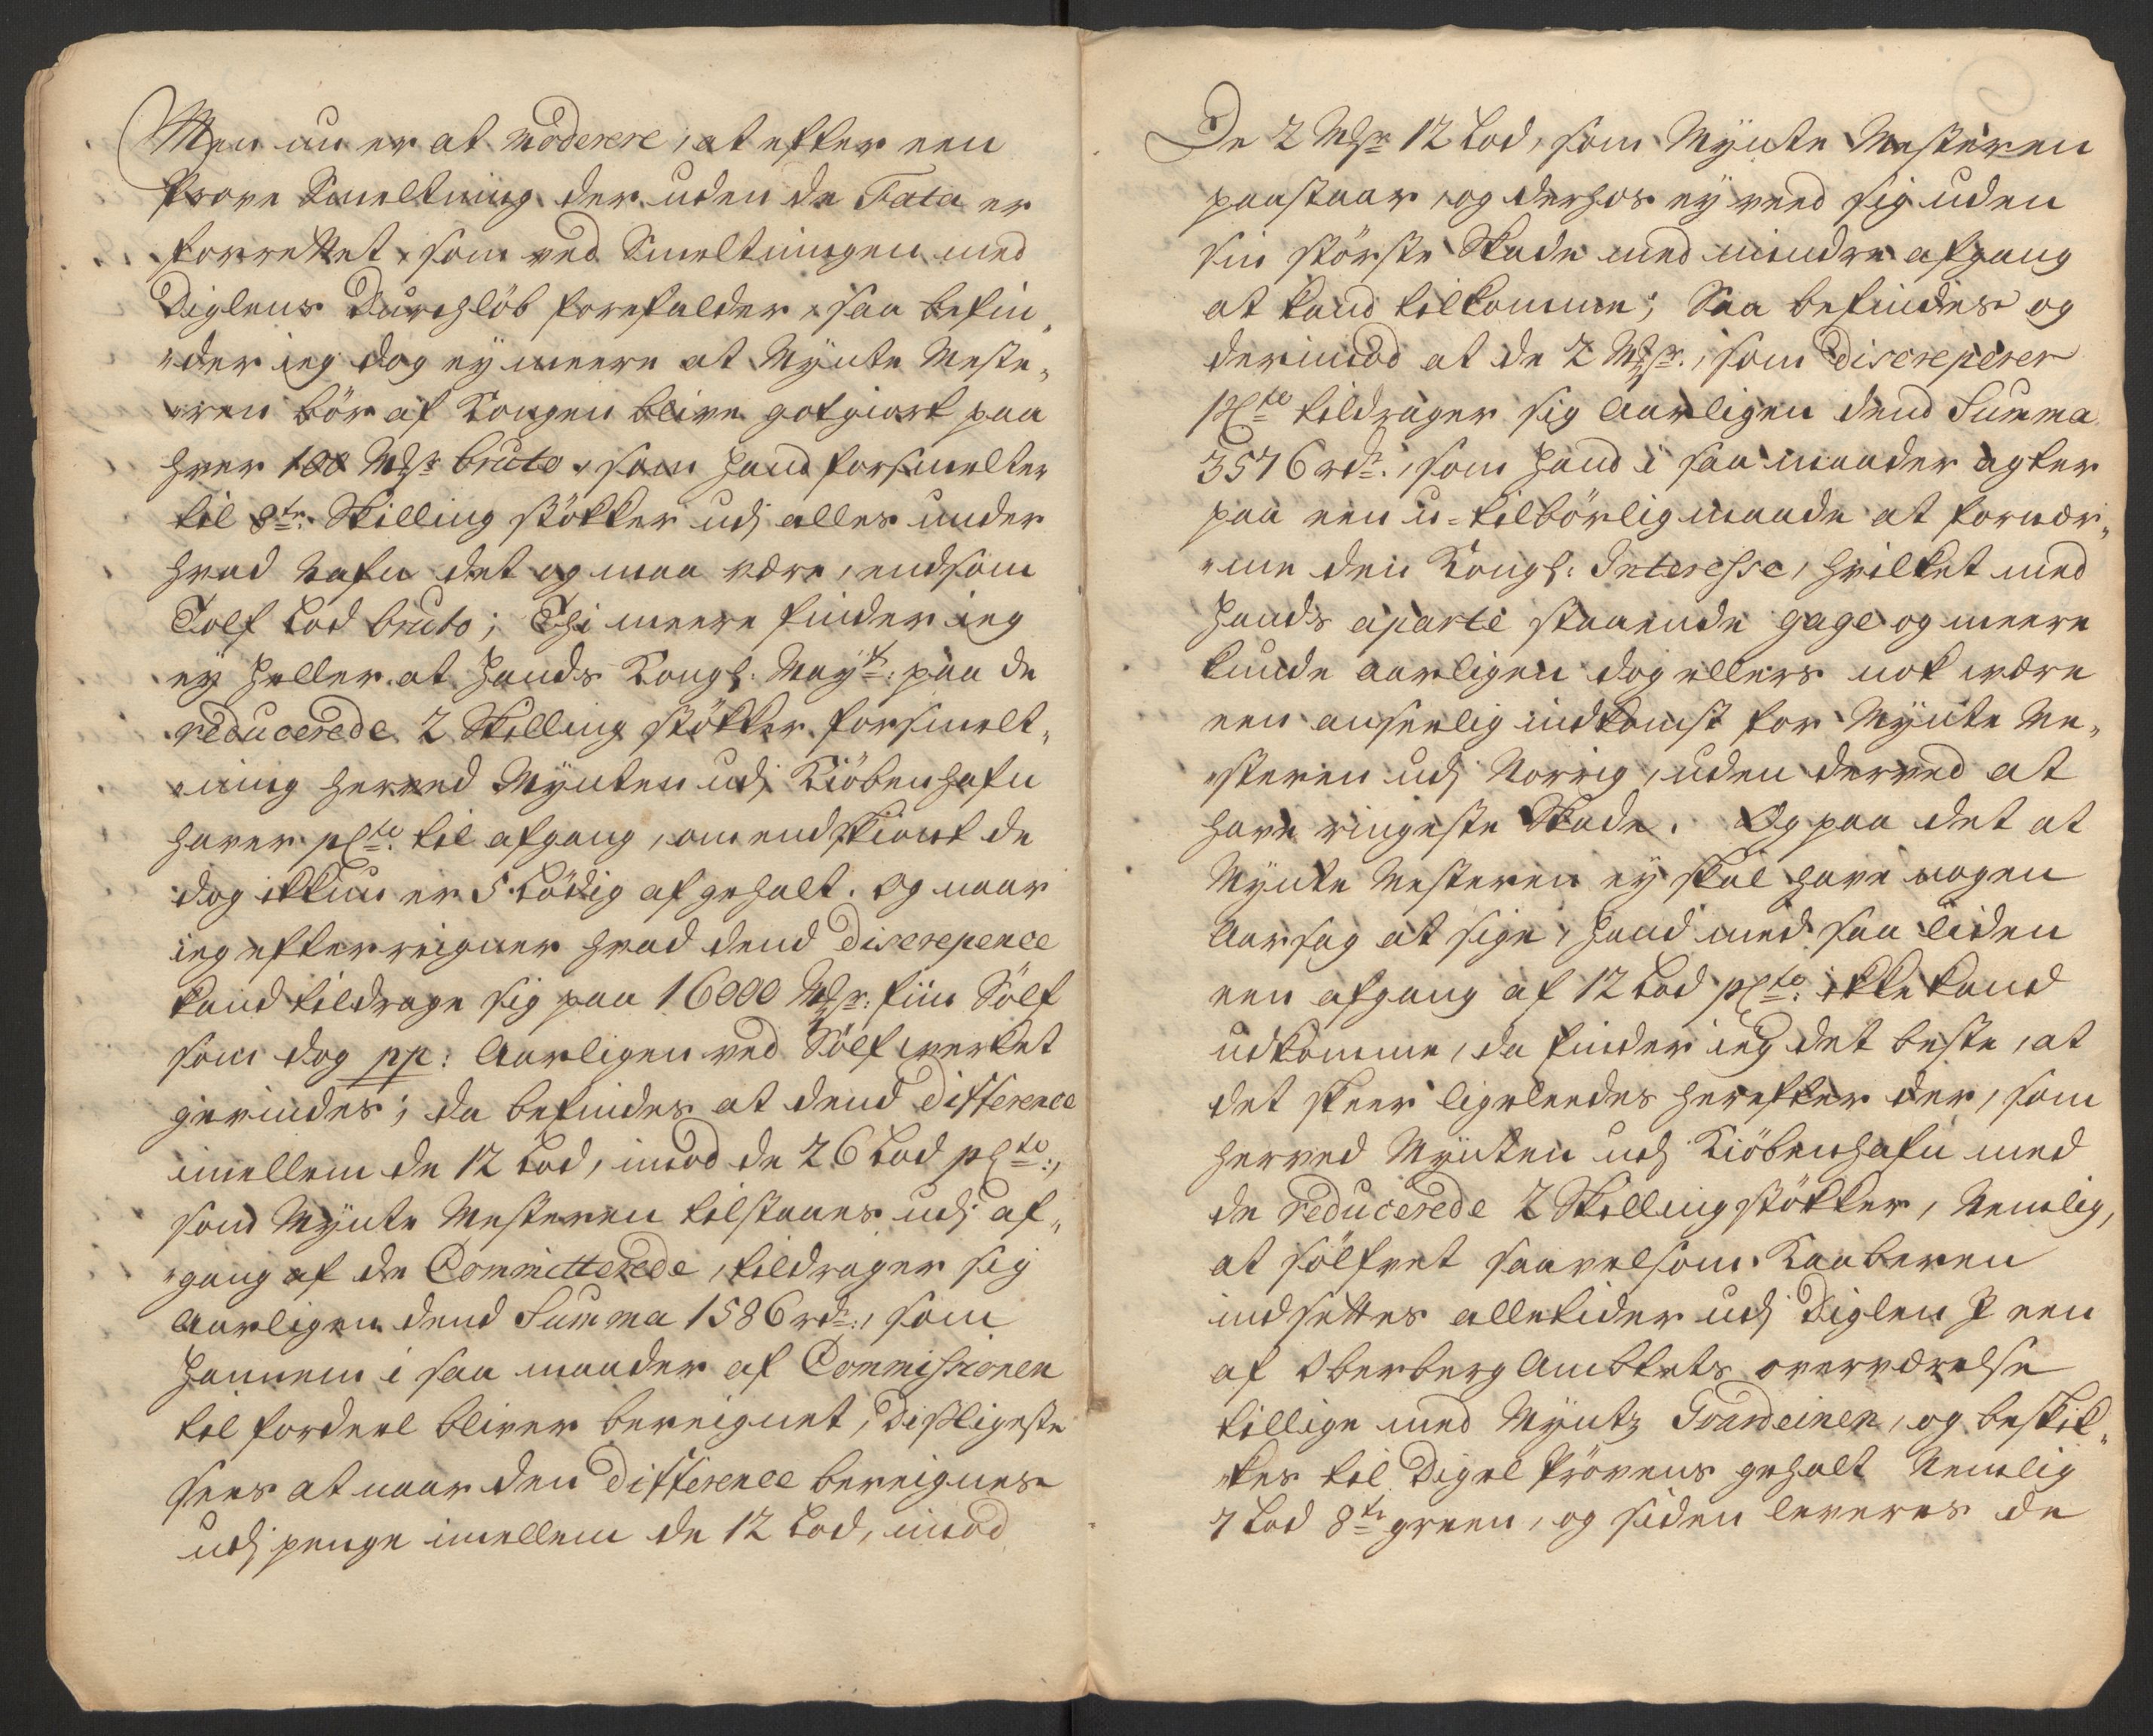 Men nu er at moderere, at efter een
Prove Smeltning der uden de Fata er
forrettet, som ved Smeltningen med
Diglens Durchlöb forefalder, saa befin„
„der ieg dog ey meere at Mynte Meste„
„ren bör af Kongen blive gotgiort paa
hver 100 Mk: bruto, som hand forsmelter
til 8te: Skilling stökker udj alles under
hvad Nafn det og maa være, endsom
Tolf Lod bruto; Thi meere finder ieg
ey heller at Hands Kongl: Mayt: paa de
reducerede 2 Skilling stökker forsmelt„
„ning herved Mynten udj Kiöbenhafn
haver pCto: til afgang, om endskiönt de
dog ikkun er 5 Lödig af gehalt. Og naar
ieg efterreigner hvad dend discrepence
kand tildrage sig paa 16000 Mk: fiin Sölf
som dog pp: Aarligen ved Sölf werket
gevindes; da befindes at dend difference
imellem de 12 Lod, imod de 26 Lod pCto:,
som Mynte Mesteren tilstaaes udj af„
„gang af de Committerede, tildrager sig
Aarligen dend Summa 1586 rdr:, som
hannem i saa maader af Commissionen
til fordeel bliver bereignet, disligeste
sees at naar den difference bereignes
udj penge imellem de 12 Lod, imod
De 2 Mk: 12 Lod, som Mynte Mesteren
paastaar, og derhos ey veed sig uden
sin störste Skade med mindre afgang
at kand tilkomme; Saa befindes og
derimod at de 2 Mk:, som discreperer
pCto tildrager sig Aarligen dend Summa
3576 rdr:, som hand i saa maader agter
paa een u-tilbörlig maade at fornær„
„me den Kongl: Interesse, hvilket med
hands aparte staaende gage og meere
kunde aarligen dog ellers nok være
een anseelig indkomst for Mynte Me„
„steren udj Norrig, uden derved at
have ringeste Skade. Og paa det at
Mynte Mesteren ey skal have nogen
Aarsag at sige, hand med saa liden
een afgang af 12 Lod pCto: ikke kand
udkomme, da finder ieg det beste, at
det skeer ligeleedes herefter der, som
herved Mynten udj Kiöbenhafn med
de reducerede 2 Skilling stökker, Nemlig,
at sölfvet saavelsom Kaaberen
indsettes alletider udj Diglen J een
af Oberberg Ambtets overværelse
tillige med Myntz Guardeinen, og beskik„
„kes til Digel Prövens gehalt Nemlig
7 Lod 8te green, og siden leveres de